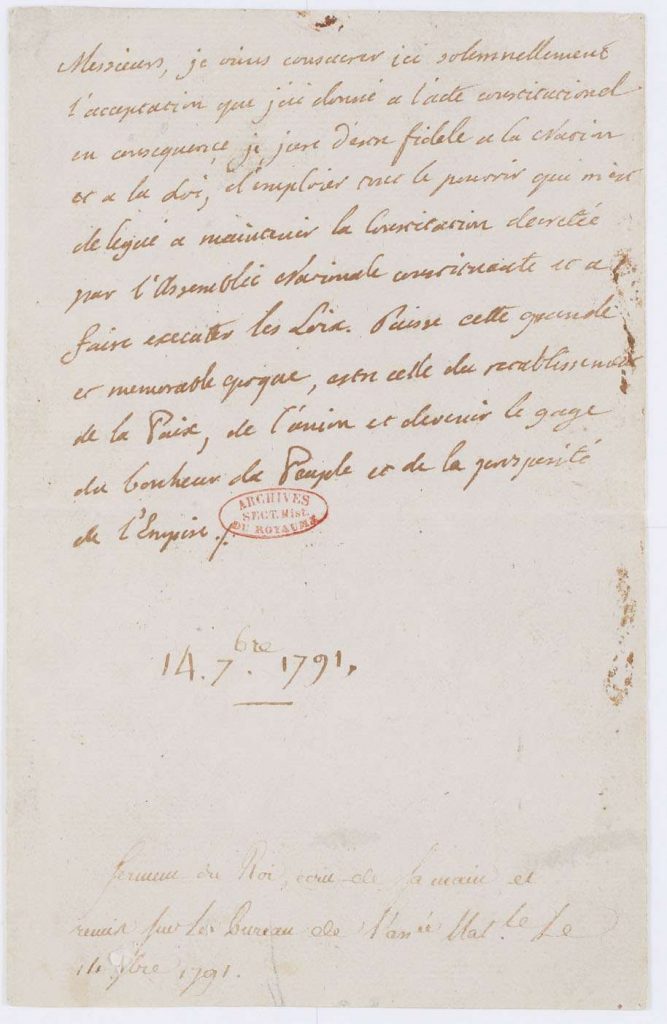 Messieurs, je viens consacrer ici solemnellement
l'acceptation que j'ai donné a l'acte constitutionel
en consequence, je jure d'estre fidele a la Nation
et a la Loi, d'emploier tout le pouvoir qui m'est
delegué a maintenir la Constitution decretée
par l'Assemblée Nationale constituante et a
faire executer les Loix. Puisse cette grande
et memorable epoque, estre celle du retablissement
de la Paix, de l'union et devenir le gage
du bonheur du Peuple et de la prosperité
de l'Empire.
ARCHIVES
SECT. Hist.
DU ROYAUME
14. 7.bre 1791.
Serment du Roi, écrit de sa main et
remis sur le bureau de l'assée Nat.le Le
14 7bre 1791.